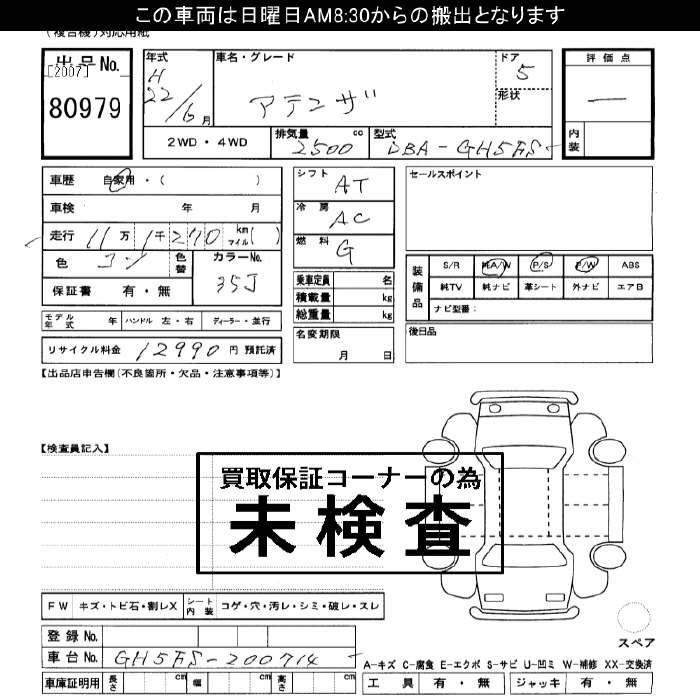 この車両は日曜日AM8:30からの搬出となります
(複合機)対応用紙
出品No.
[2007]
80979
年式
H
22/6月
車名・グレード
アテンザ
ドア
5
形状
評価点
―
内装
2WD・4WD
排気量 cc
2500
型式
DBA-GH5FS
車歴 自家用・( )
車検 年 月
走行 11万1千270 km マイル( )
色 コン 色替
カラーNo.
35J
保証書 有・無
モデル年式 年 ハンドル 左・右 ディーラー・並行
リサイクル料金 12990円 預託済
シフト AT
冷房 AC
燃料 G
乗車定員 名
積載量 kg
総重量 kg
名変期限
月 日
セールスポイント
装備品
S/R 純A/W P/S P/W ABS
純TV 純ナビ 革シート 外ナビ エアB
ナビ型番:
後日品
【出品店申告欄(不良箇所・欠品・注意事項等)】
【検査員記入】
買取保証コーナーの為
未検査
FW キズ・トビ石・割レX シート内装 コゲ・穴・汚レ・シミ・破レ・スレ
スペア
登録No.
車台No. GH5FS-200714
車庫証明用 長さ cm 幅 cm 高さ cm
A-キズ C-腐食 E-エクボ S-サビ U-凹ミ W-補修 XX-交換済
工具 有・無 ジャッキ 有・無